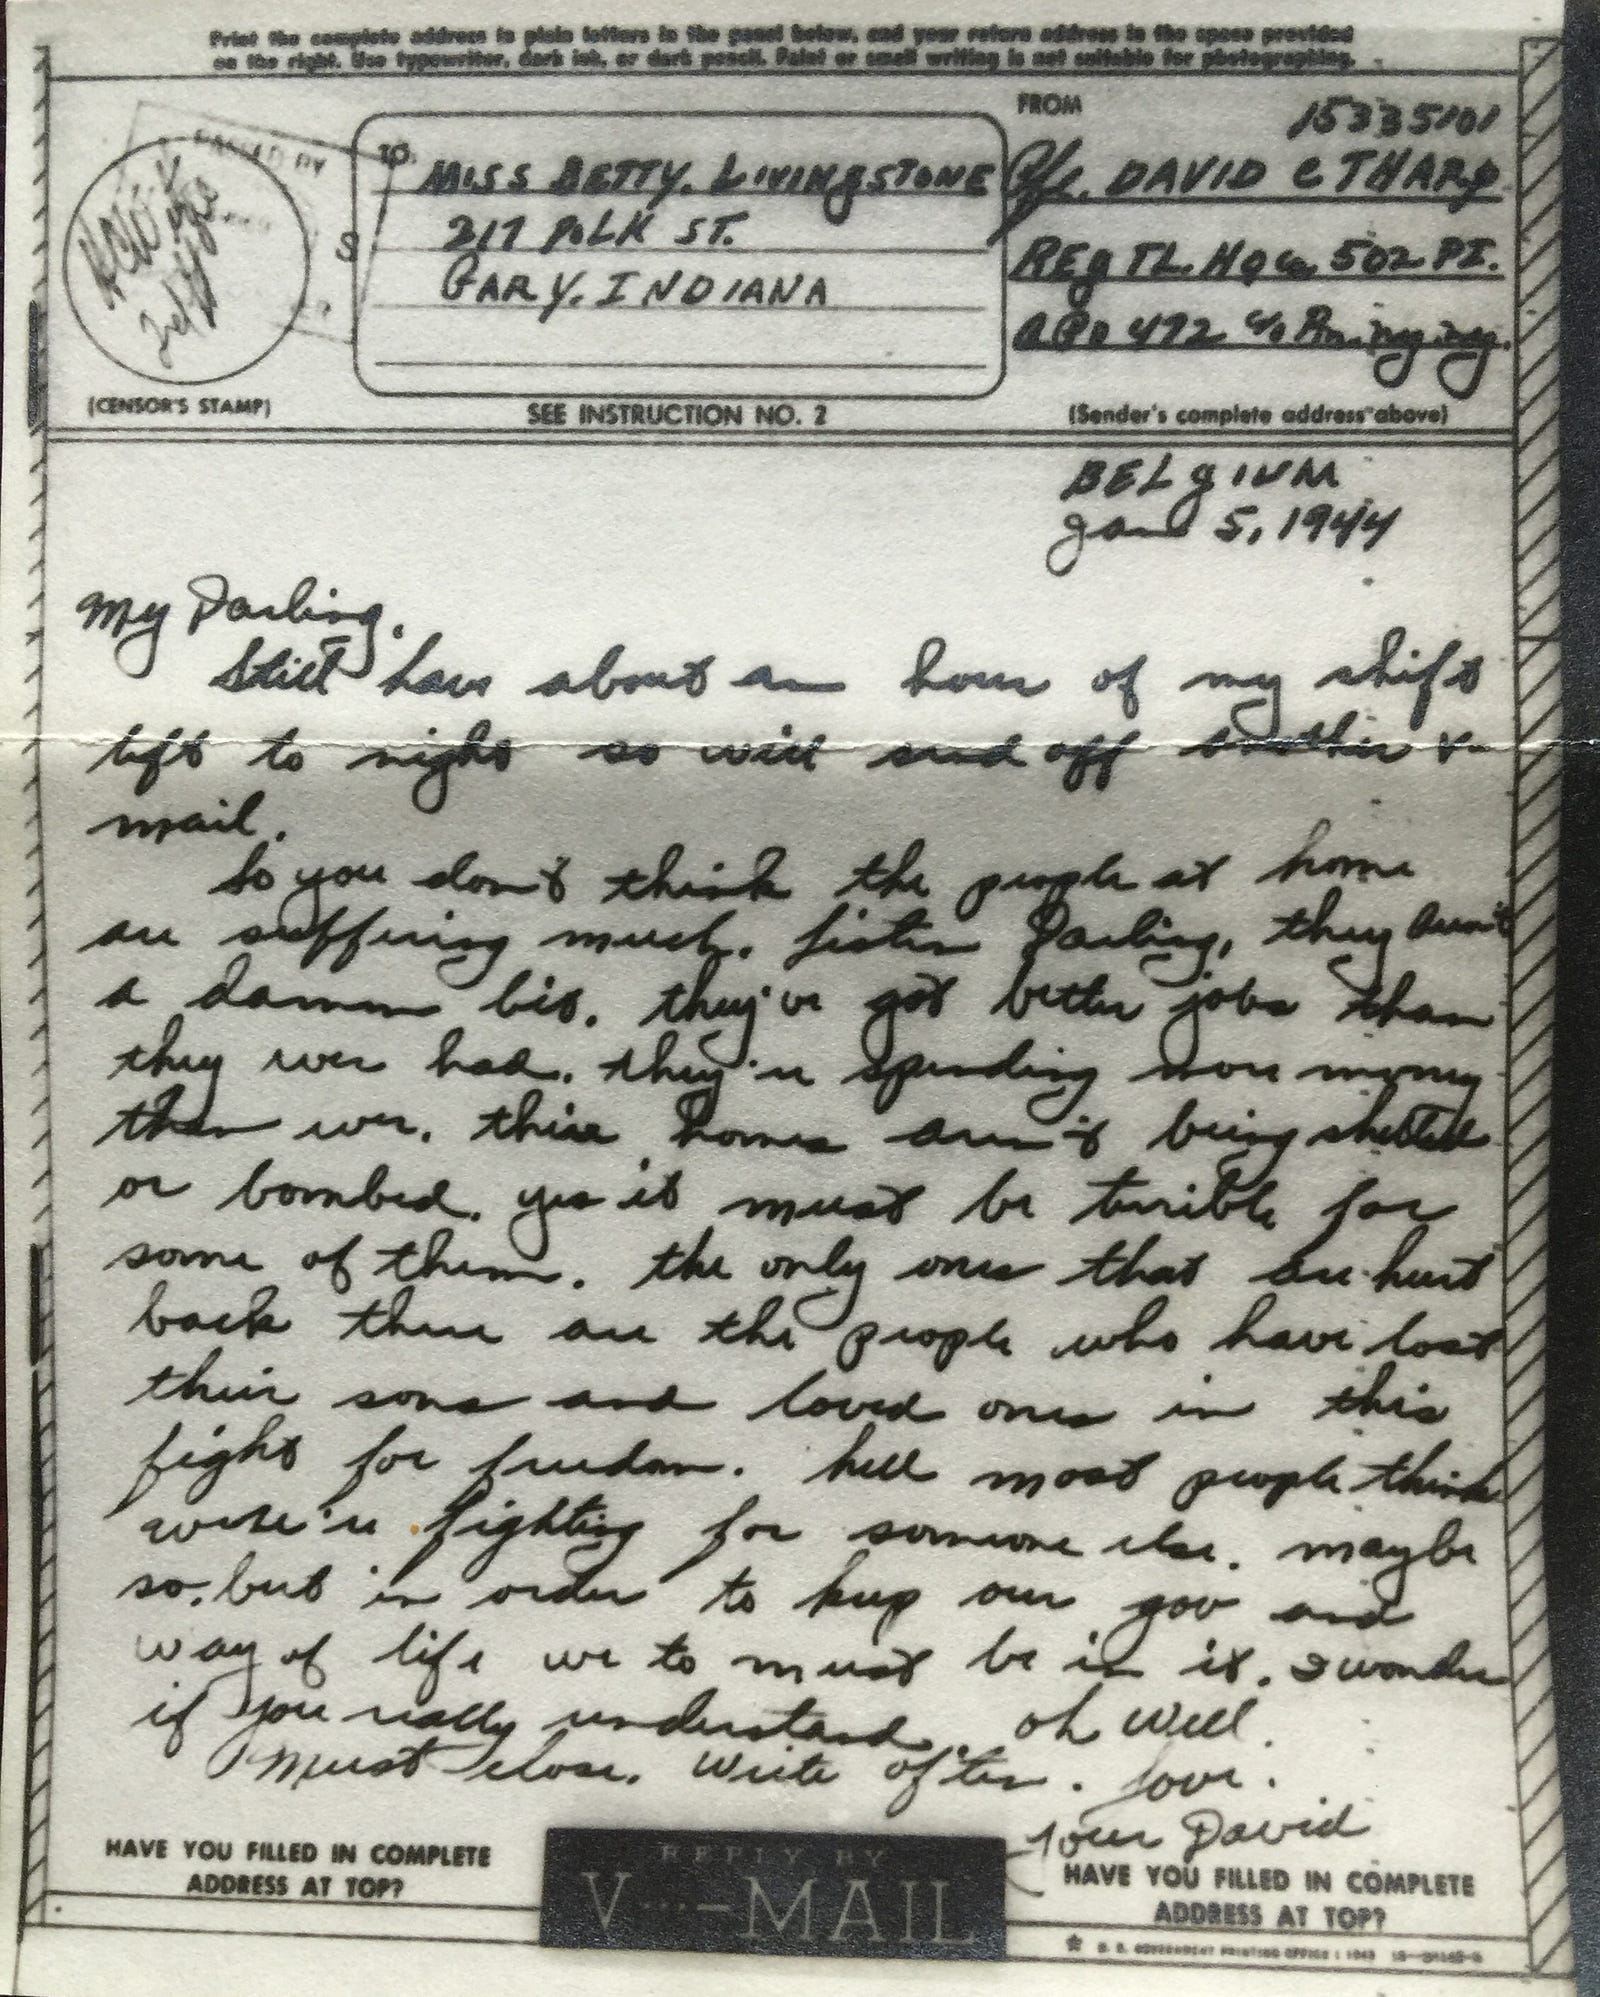 Print the complete address in plain letters in the panel below, and your return address in the space provided
on the right. Use typewriter, dark ink, or dark pencil. Faint or small writing is not suitable for photographing.
PASSED BY
S
(CENSOR'S STAMP)
TO
MISS BETTY. LIVINGSTONE
217 POLK ST.
GARY, INDIANA
SEE INSTRUCTION NO. 2
FROM
15335101
Pfc. DAVID C THARP
REGTL. HQ Co. 502 PI.
APO 472 c/o
(Sender's complete address above)
BELGIUM
Jan 5, 1944
My Darling,
Still have about an hour of my shift
left to night so will send off another V-
mail.
So you don't think the people at home
are suffering much. Listen Darling, they aren't
a damm bit. they've got better jobs than
they ever had. they're spending more money
than ever. their homes aren't being shelled
or bombed. yes it must be terrible for
some of them. the only ones that are hurt
back there are the people who have lost
their sons and loved ones in this
fight for freedom. hell most people think
we're fighting for someone else. maybe
so, but in order to keep our gov and
way of life we to must be in it. I wonder
if you really understand. oh well.
Must close. Write often. Love.
Your David
HAVE YOU FILLED IN COMPLETE
ADDRESS AT TOP?
REPLY BY
V···—MAIL
HAVE YOU FILLED IN COMPLETE
ADDRESS AT TOP?
★ U. S. GOVERNMENT PRINTING OFFICE : 1943